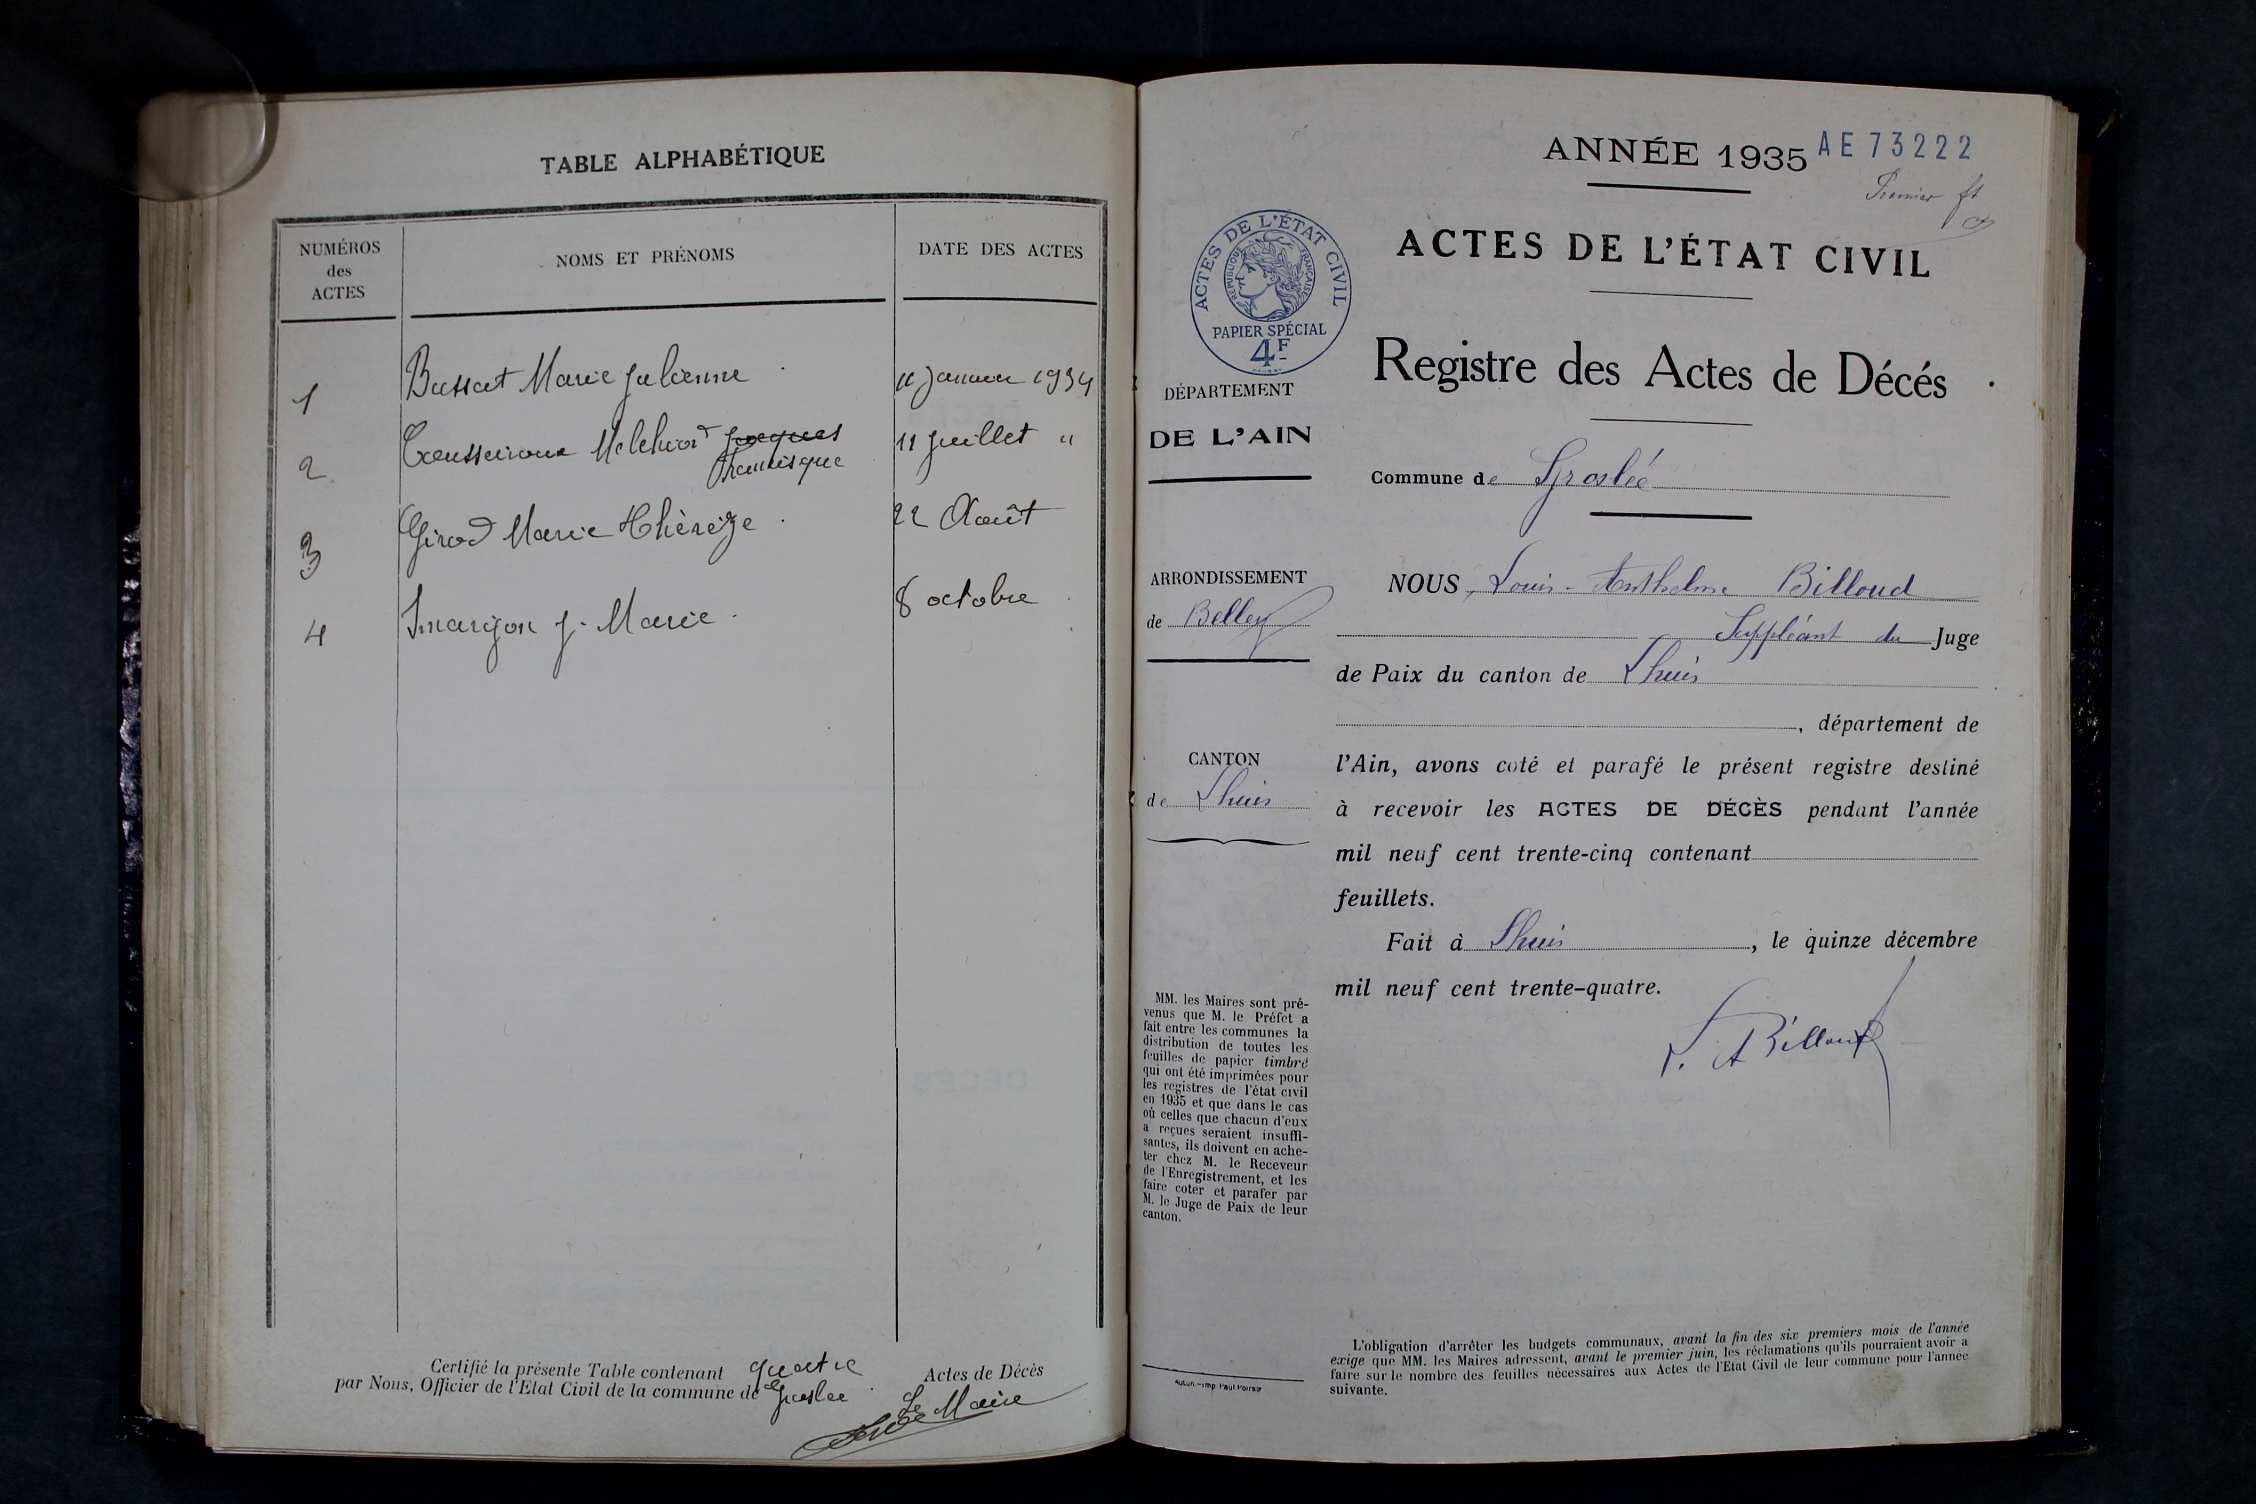 TABLE ALPHABÉTIQUE
NUMÉROS
des
ACTES
NOMS ET PRÉNOMS
DATE DES ACTES
1 Bussat Marie Julienne 11 Janvier 1934
2 Melchior Jacques 11 Juillet "
Francisque
3 Girod Marie Thérèze 22 Août
4 J. Marie 8 octobre
Certifié la présente Table contenant quatre Actes de Décès
par Nous, Officier de l'Etat Civil de la commune de Groslée
Le Maire
ANNÉE 1935 AE 73222
Premier ft
ACTES DE L'ÉTAT CIVIL
RÉPUBLIQUE FRANÇAISE
PAPIER SPÉCIAL
4F
ACTES DE L'ÉTAT CIVIL
Registre des Actes de Décés
DÉPARTEMENT
DE L'AIN
Commune de Groslée
ARRONDISSEMENT
de Belley
NOUS, Louis-Anthelme Billoud
Suppléant du Juge
de Paix du canton de Lhuis
, département de
CANTON
de Lhuis
l'Ain, avons coté et parafé le présent registre destiné
à recevoir les ACTES DE DÉCÈS pendant l'année
mil neuf cent trente-cinq contenant
feuillets.
Fait à Lhuis, le quinze décembre
mil neuf cent trente-quatre.
L. A Billoud
MM. les Maires sont pré-
venus que M. le Préfet a
fait entre les communes la
distribution de toutes les
feuilles de papier timbré
qui ont été imprimées pour
les registres de l'état civil
en 1935 et que dans le cas
où celles que chacun d'eux
a reçues seraient insuffi-
santes, ils doivent en ache-
ter chez M. le Receveur
de l'Enregistrement, et les
faire coter et parafer par
M. le Juge de Paix de leur
canton.
Autun.-Imp. Paul Poirson
L'obligation d'arrêter les budgets communaux, avant la fin des six premiers mois de l'année
exige que MM. les Maires adressent, avant le premier juin, les réclamations qu'ils pourraient avoir à
faire sur le nombre des feuilles nécessaires aux Actes de l'Etat Civil de leur commune pour l'année
suivante.